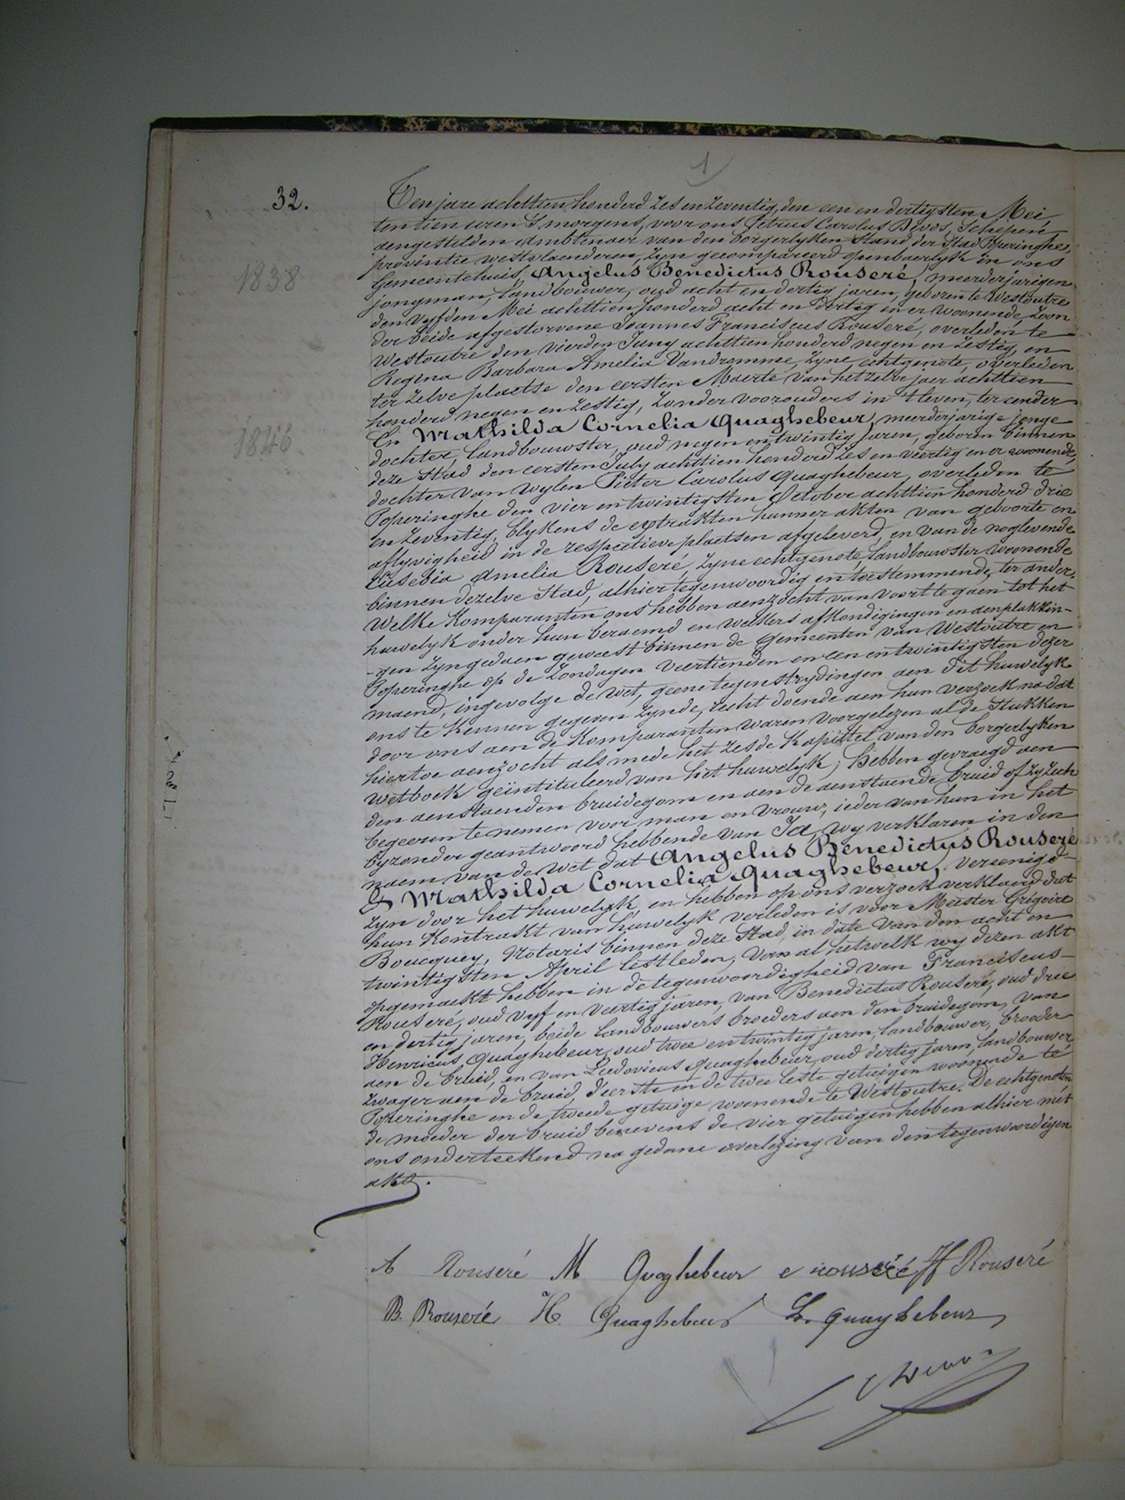 1
32.
Ten jare achttien honderd zes en zeventig, den een en dertigsten Mei
ten tien uren 's morgens, voor ons Petrus Carolus Devos, Schepen
aengestelden Ambtenaer van den borgerlyken Stand der Stad Poperinghe,
provintie Westvlaenderen, zyn gecompareerd openbaerlyk in ons
1838
Gemeentehuis, Angelus Benedictus Rouseré, meerderjarigen
jongman, landbouwer, oud acht en dertig jaren, geboren te Westoutre
den vyfden Mei achttien honderd acht en dertig en er woonende, zoon
der beide afgestorvene Joannes Franciscus Rouseré, overleden te
Westoutre den vierden Juny achttien honderd negen en zestig, en
Regina Barbara Amelia Vandromme, zyne echtgenote, overleden
ter zelve plaetse den eersten Maerte van het zelve jaer achttien
honderd negen en zestig, zonder voorouders in 't leven, ter eender
1846
En Mathilda Cornelia Quaghebeur, meerderjarige jonge
dochter, landbouwster, oud negen en twintig jaren, geboren binnen
deze Stad den eersten July achttien honderd zes en veertig en er woonende,
dochter van wylen Pieter Carolus Quaghebeur, overleden te
Poperinghe den vier en twintigsten October achttien honderd drie
en zeventig, blykens de extrakten hunner akten van geboorte en
aflyvigheid in de respectieve plaetsen afgeleverd, en van de noglevende
Eusebia Amelia Rouseré, zyne echtgenote, landbouwster woonende
binnen dezelve Stad, alhier tegenwoordig en toestemmende, ter ander,
Welke Komparanten ons hebben aenzocht van voort te gaen tot het
huwelyk onder hun beraemd en welkers afkondigingen en aenplakkin-
-gen zyn gedaen geweest binnen de Gemeenten van Westoutre en
Poperinghe op de Zondagen veertienden en een en twintigsten dezer
maend, ingevolge de wet, geene tegenstrydingen aen dit huwelyk
ons te kennen gegeven zynde, recht doende aen hun verzoek na dat
door ons aen de Komparanten waren voorgelezen al de Stukken
hiertoe aenzocht als mede het zesde Kapittel van den borgerlyken
Wetboek geintituleerd van het huwelyk; Hebben gevraegd aen
den aenstaenden bruidegom en aen de aenstaende bruid of zy zich
begeeren te nemen voor man en vrouw, ieder van hun in het
byzonder geantwoord hebbende van Ja, wy verklaren in den
naem van de wet dat Angelus Benedictus Rouseré
& Mathilda Cornelia Quaghebeur, vereenigd
zyn door het huwelyk, en hebben op ons verzoek verklaerd dat
hun Kontrakt van huwelyk verleden is voor Meester Grégoire
Boucquey, Notaris binnen deze Stad, in date van den acht en
twintigsten April lestleden, van al hetwelk wy dezen akt
opgemaekt hebben in de tegenwoordigheid van Franciscus
Rouseré, oud vyf en veertig jaren, van Benedictus Rouseré, oud drie
en dertig jaren, beide landbouwers broeders aen den bruidegom, van
Henricus Quaghebeur, oud twee en twintig jaren, landbouwer, broeder
aen de bruid, en van Ludovicus Quaghebeur, oud dertig jaren, landbouwer
zwager aen de bruid, d'eerste en de twee leste getuigen woonende te
Poperinghe en de tweede getuige woonende te Westoutre. De echtgenoten
de moeder der bruid benevens de vier getuigen hebben alhier met
ons onderteekend na gedane overlezing van den tegenwoordigen
akt.
A Rouseré M Quaghebeur e rouseré ff Rouseré
B. Rouseré H Quaghebeur L. quaghebeur
C Devos